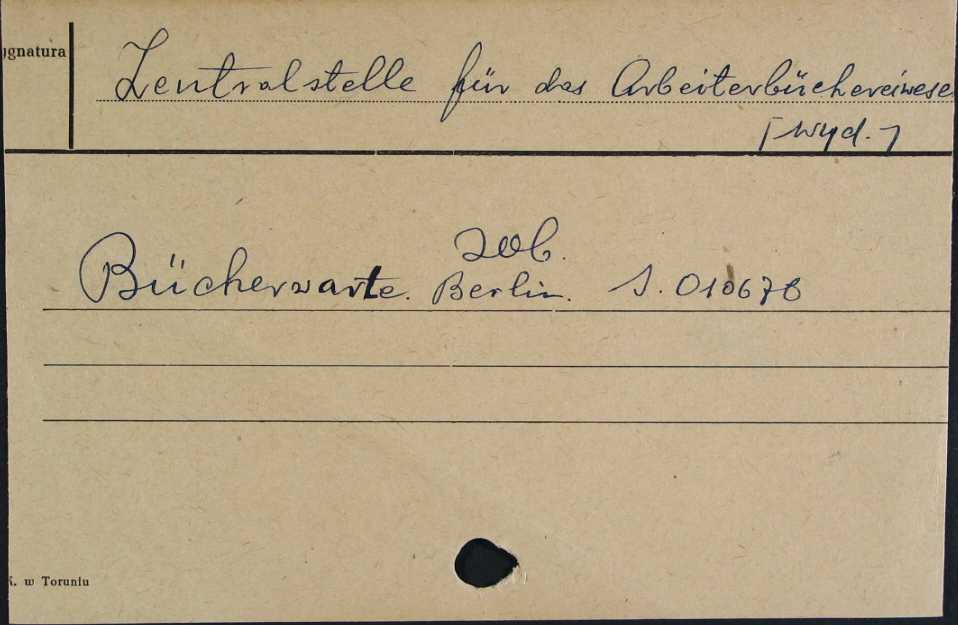 ygnatura
Zentralstelle für das Arbeiterbüchereiwese
[wyd.]
zob.
Bücherwarte. Berlin. S. 010678
K. w Toruniu